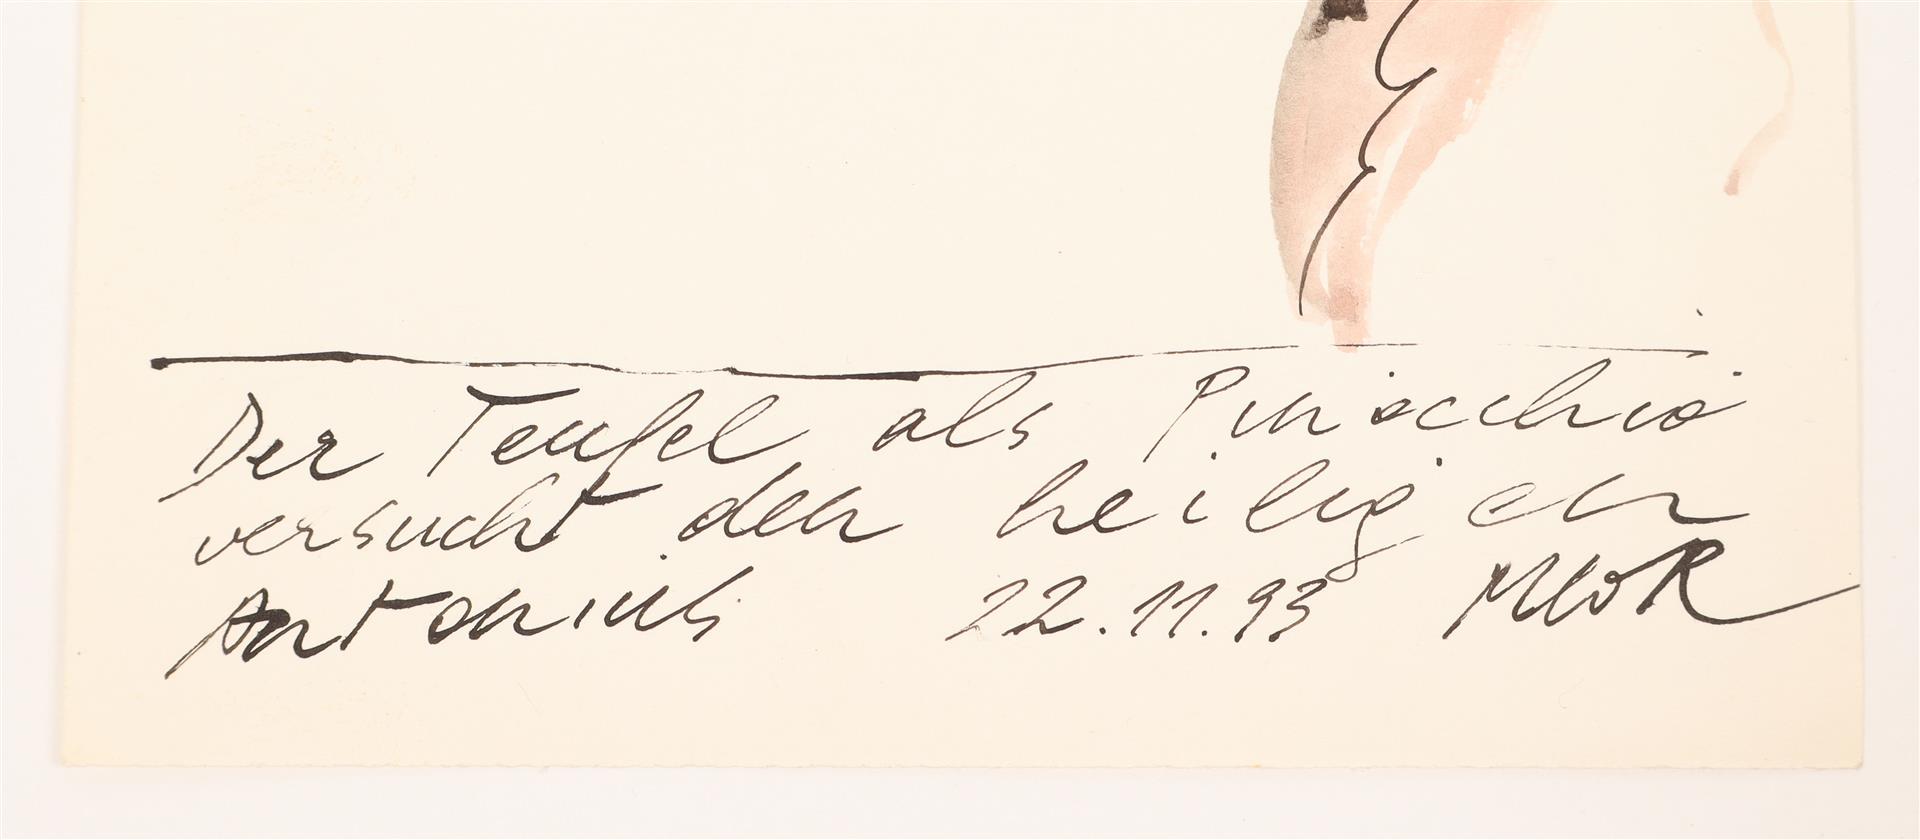 Der Teufel als Pinocchio
versucht den heiligen
Antonius 22.11.93 MWR